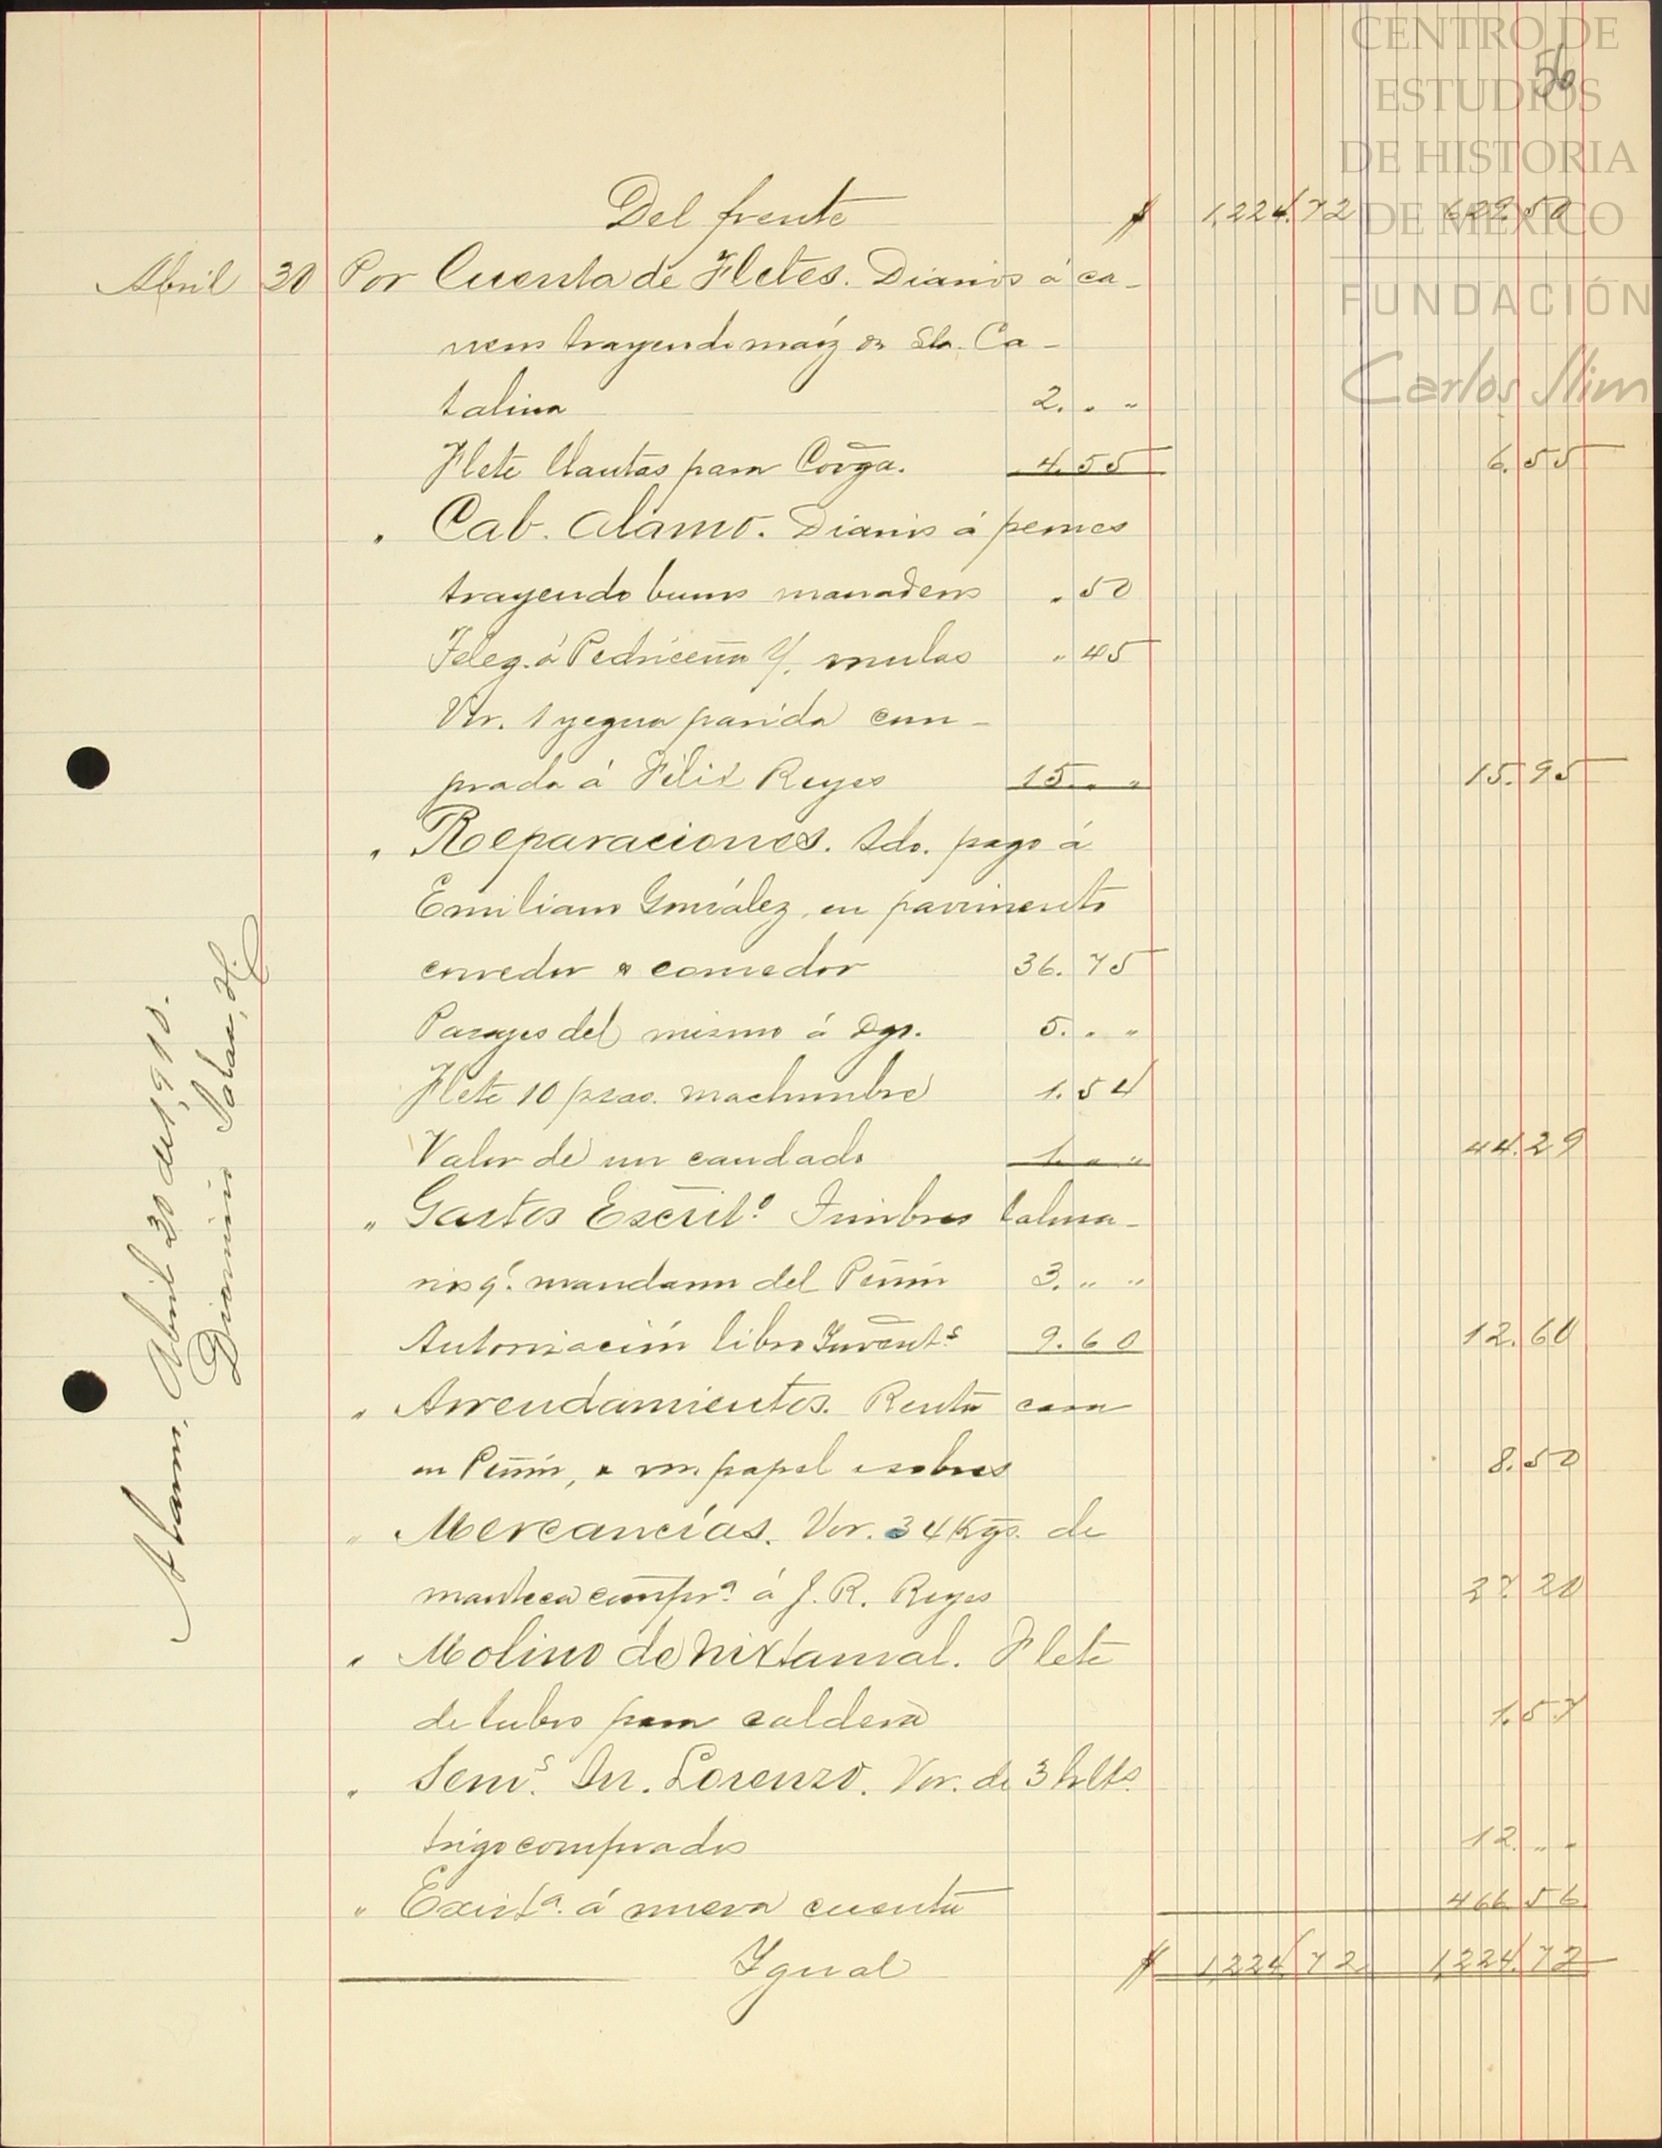 CENTRO DE
ESTUDIOS
DE HISTORIA
DE MÉXICO
FUNDACIÓN
Carlos Slim
56
Del frente $ 1,224.72 629.50
Abril 30 Por Cuenta de Fletes. Diarios á ca-
rreros trayendo maíz de Sta. Ca-
talina 2. " "
Flete llantas para Covga. 4.55 6.55
" Cab. Alamo. Diarios á peones
trayendo burros manaderos . 50
Teleg. á Pedriceña p/. mulas " 45
Vor. 1 yegua parida com-
prada á Félix Reyes 15. " " 15.95
" Reparaciones. Sdo. pago á
Emiliano González, en pavimento
corredor & comedor 36.75
Pasajes del mismo á Dgo. 5. " "
Flete 10 pzas. machimbre 1.54
Valor de un candado 1. " " 44.29
" Gastos Escrito. Timbres talona-
rios q'. mandaron del Peñón 3. " "
Autorización libro Invents. 9.60 12.60
" Arrendamientos. Renta casa
en Peñón, & un papel sobres 8.50
" Mercancías. Vor. 34 Kgs. de
manteca compra. á J. R. Reyes 27.20
" Molino de Nixtamal. Flete
de tubos para caldera 1.57
" Sems. Sn. Lorenzo. Vor. de 3 hlts.
trigo comprados 12. " "
" Exista. á nueva cuenta 466.56
Ygual $ 1,224.72 1,224.72
Alamo, Abril 30 de 1,910.
Dionisio